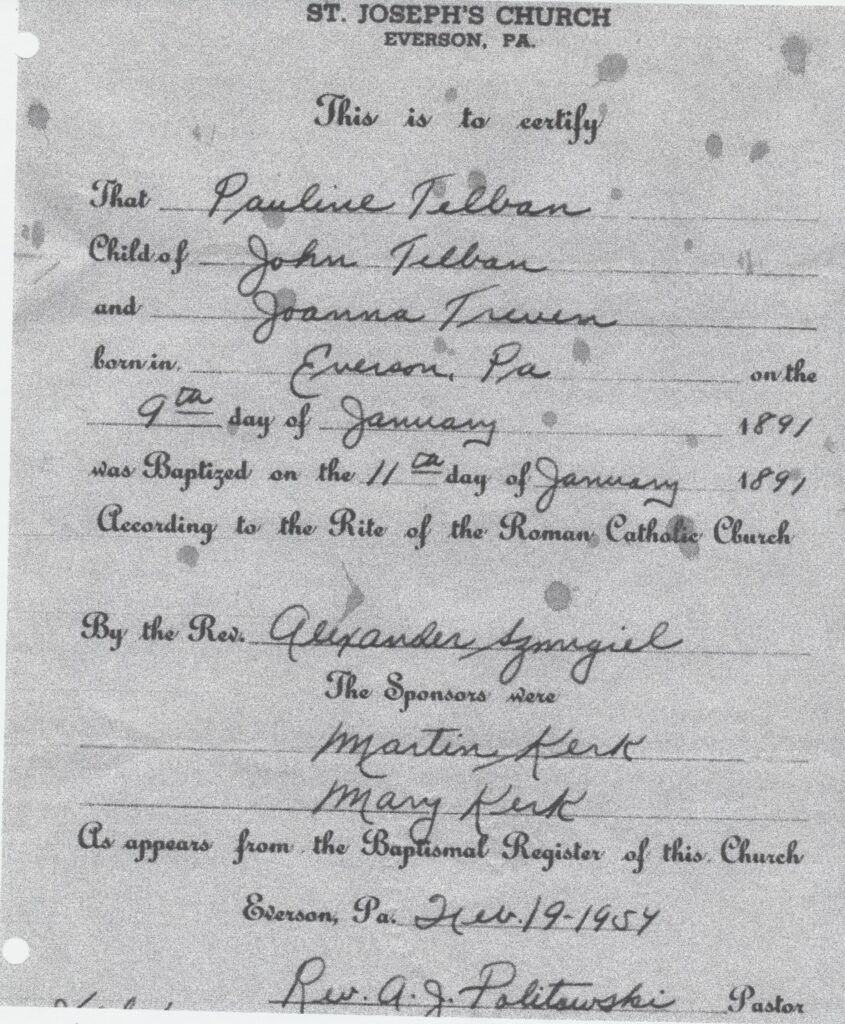 ST. JOSEPH'S CHURCH
EVERSON, PA.
This is to certify
That Pauline Telban
Child of John Telban
and Joanna Treven
born in Everson, Pa on the
9th day of January 1891
was Baptized on the 11th day of January 1891
According to the Rite of the Roman Catholic Church
By the Rev. Alexander Szmigiel
The Sponsors were
Martin Kerk
Mary Kerk
As appears from the Baptismal Register of this Church
Everson, Pa. Feb. 19-1954
Rev. A. J. Politowski Pastor